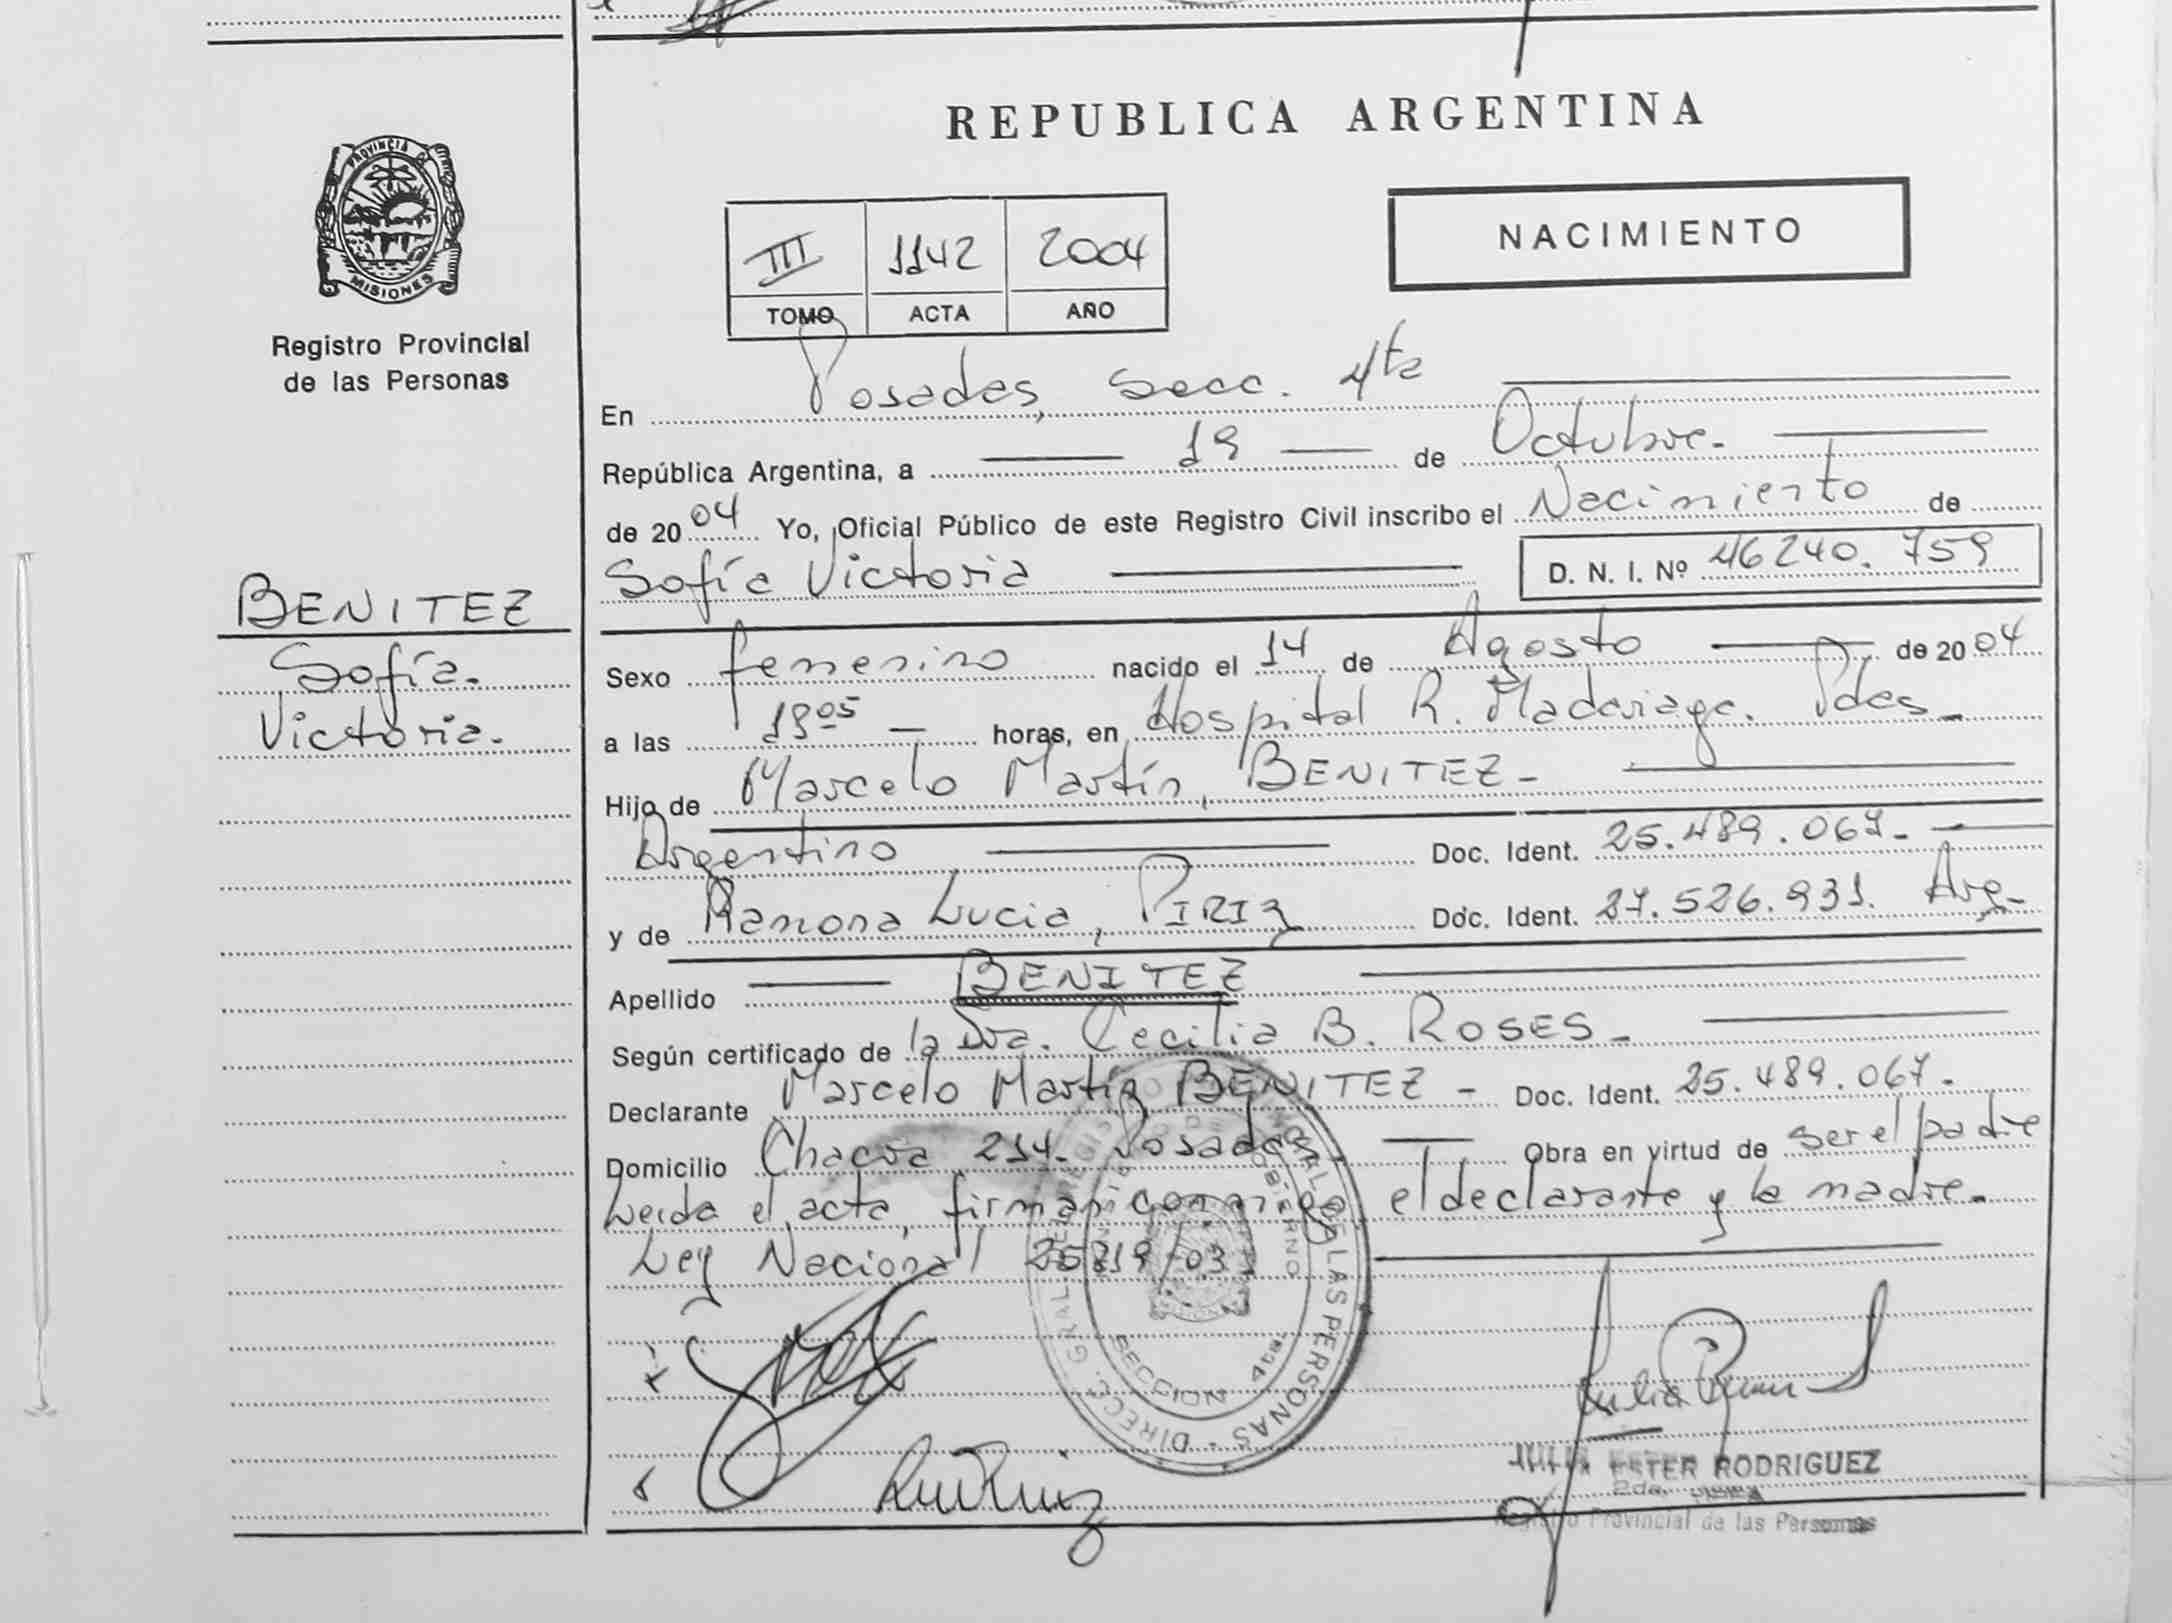 REPUBLICA ARGENTINA
PROVINCIA DE
MISIONES
Registro Provincial
de las Personas
III 1142 2004
TOMO ACTA AÑO
NACIMIENTO
En Posadas, Secc. 4ta
República Argentina, a 19 de Octubre.
de 2004 Yo, Oficial Público de este Registro Civil inscribo el Nacimiento de
Sofía Victoria D. N. I. Nº 46240.759
BENITEZ
Sofía.
Victoria.
Sexo femenino nacido el 14 de Agosto de 2004
a las horas, en Hospital R. Madariaga. Pdas
Hijo de Marcelo Martín, BENITEZ
Argentino Doc. Ident. 25.489.067.
y de Ramona Lucia, PIRIZ Doc. Ident. 27.526.931. Arg
Apellido BENITEZ
Según certificado de la Dra. Cecilia B. ROSES
Declarante Marcelo Martín BENITEZ - Doc. Ident. 25.489.067.
Domicilio Chacra 214. Posadas Obra en virtud de ser el padre
Leida el acta, firman conmigo el declarante y la madre
Ley Nacional 25819/03
DIRECC. GRAL. DEL REGISTRO PROVINCIAL DE LAS PERSONAS
GOBIERNO
SECCION 4ta.
JULIA ESTER RODRIGUEZ
2da.
Registro Provincial de las Personas